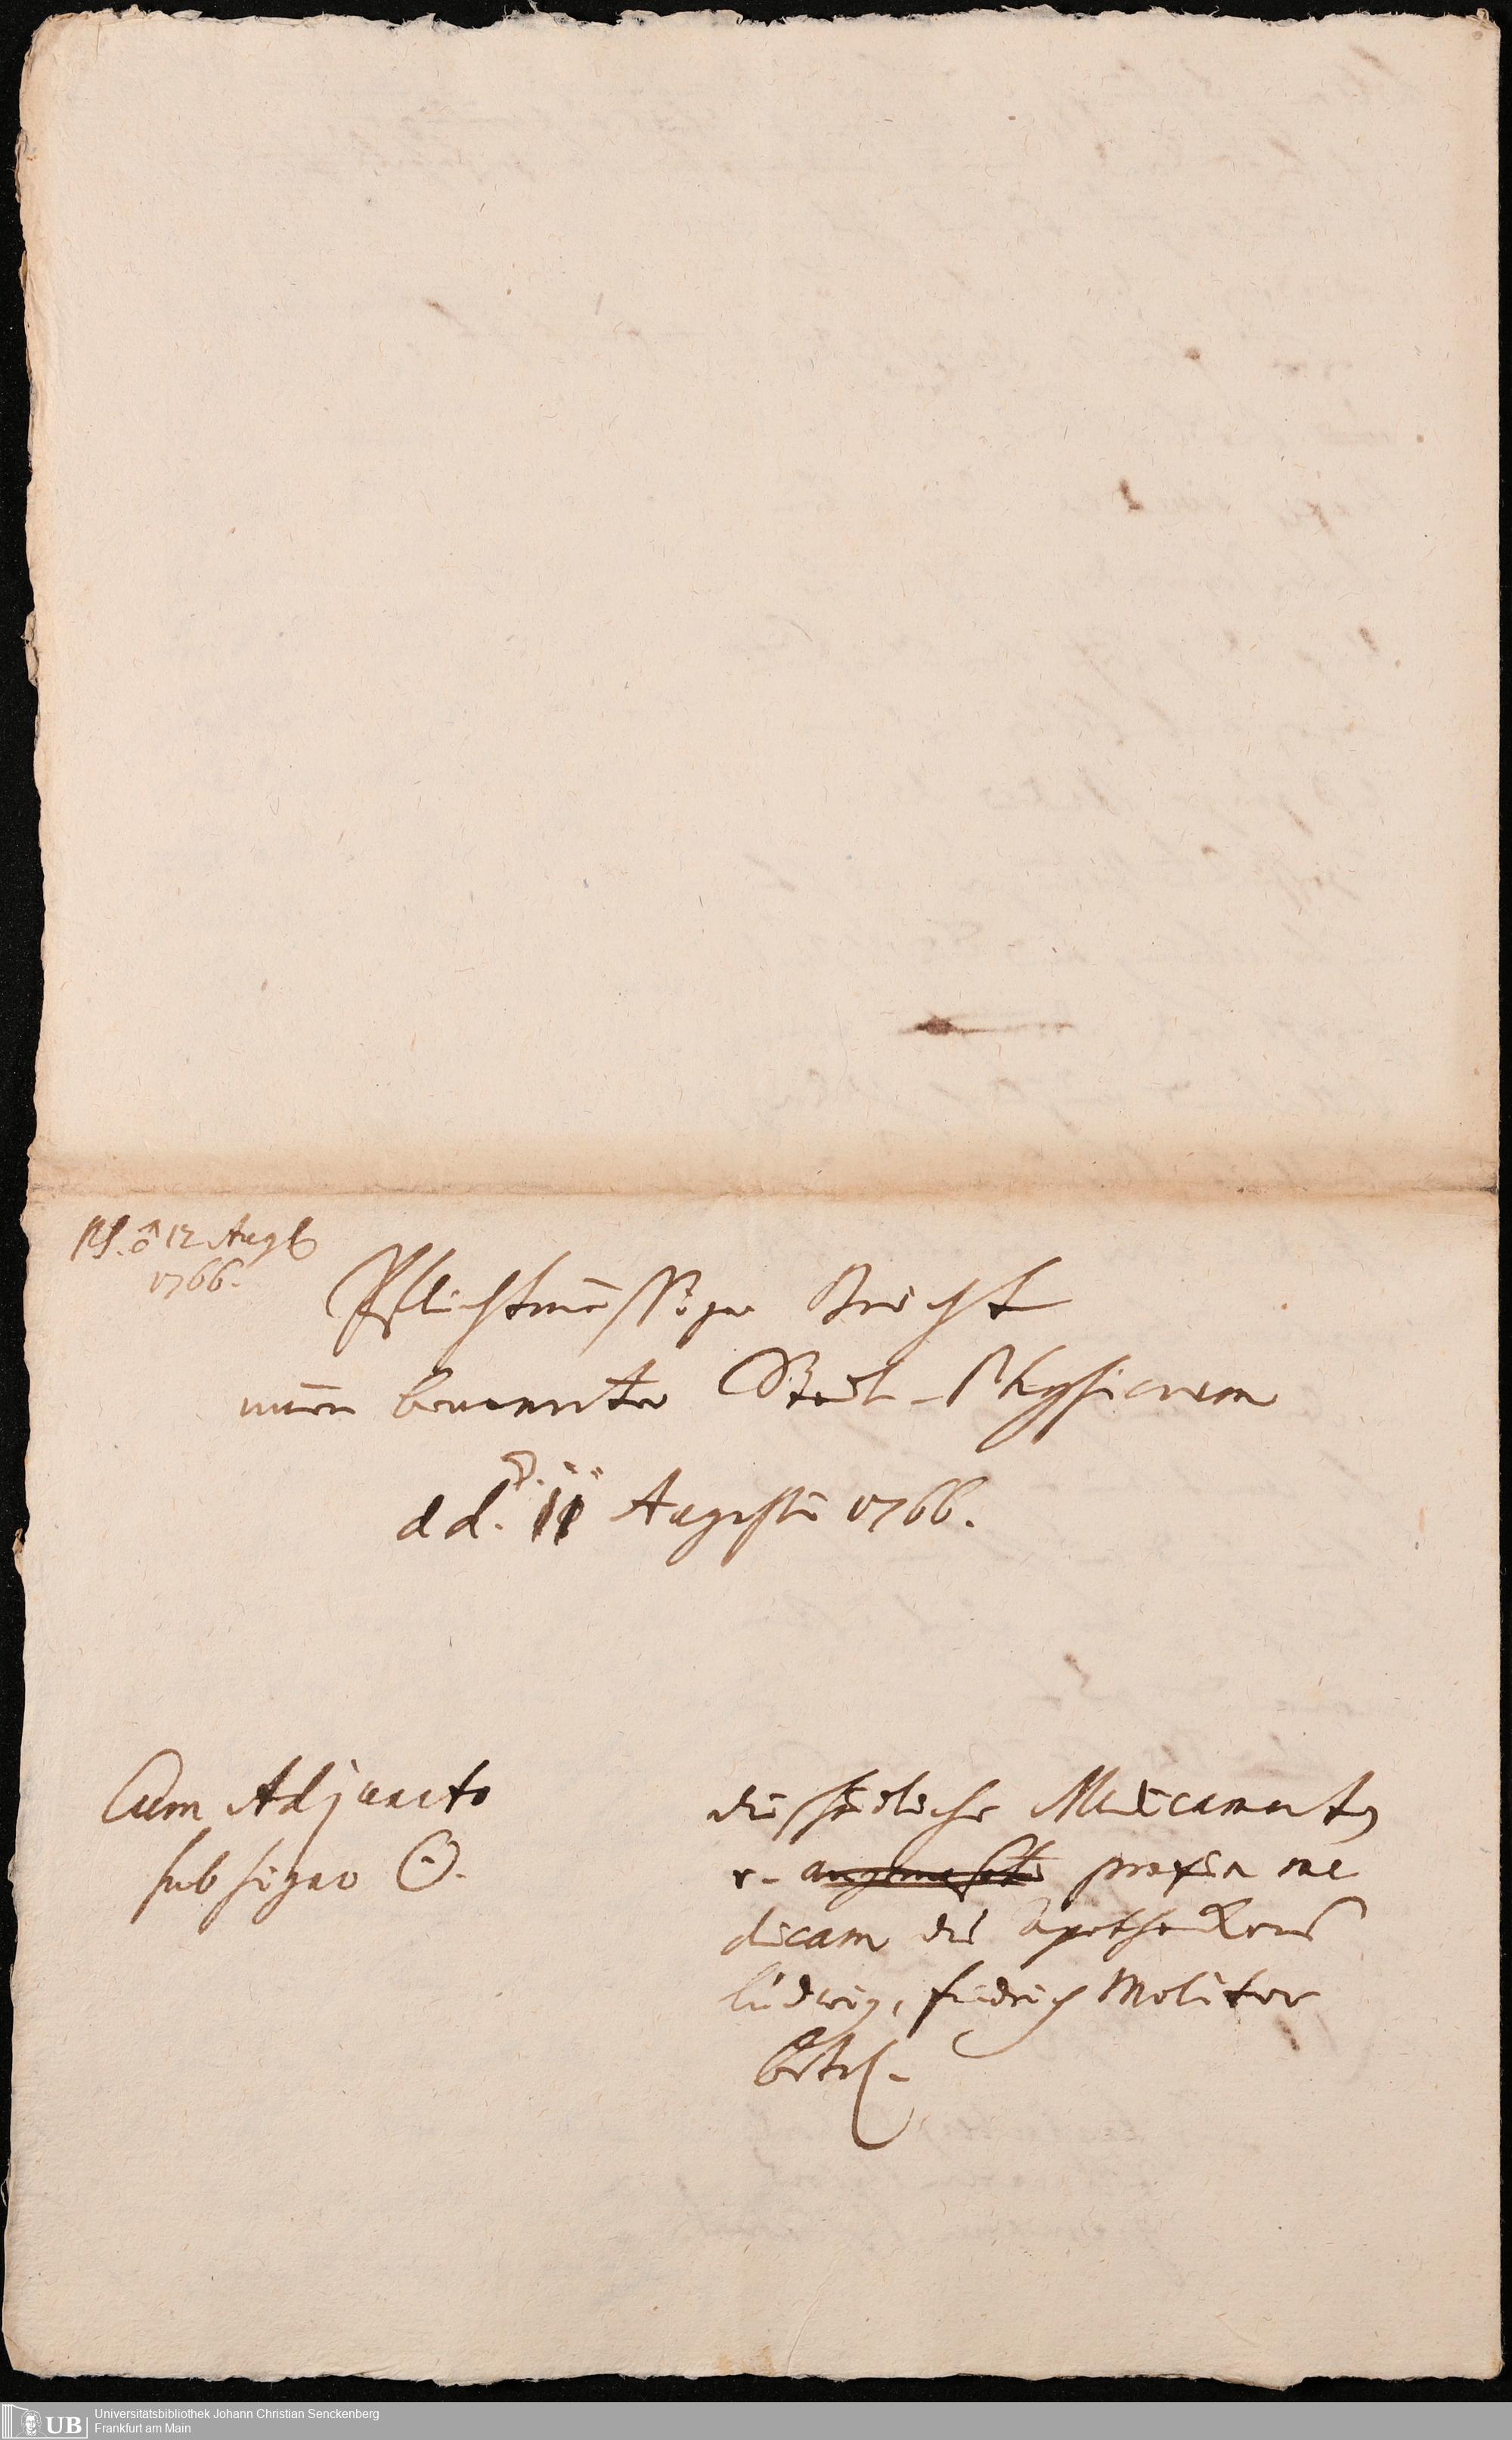 Ps. ♂ 12 Aug
1766.
Pflichtmäßiger Bericht
innen benannter Stadt-Physicorum
d d. ☽. 11 Augusti 1766.
Cum Adjuncto
sub signo ☉.
die schädliche Medicamenta
u. angemaßte praxin me
dicam des Apotheckers
Ludwig, Friedrich Molitor
betrf.
Universitätsbibliothek Johann Christian Senckenberg
Frankfurt am Main
UB